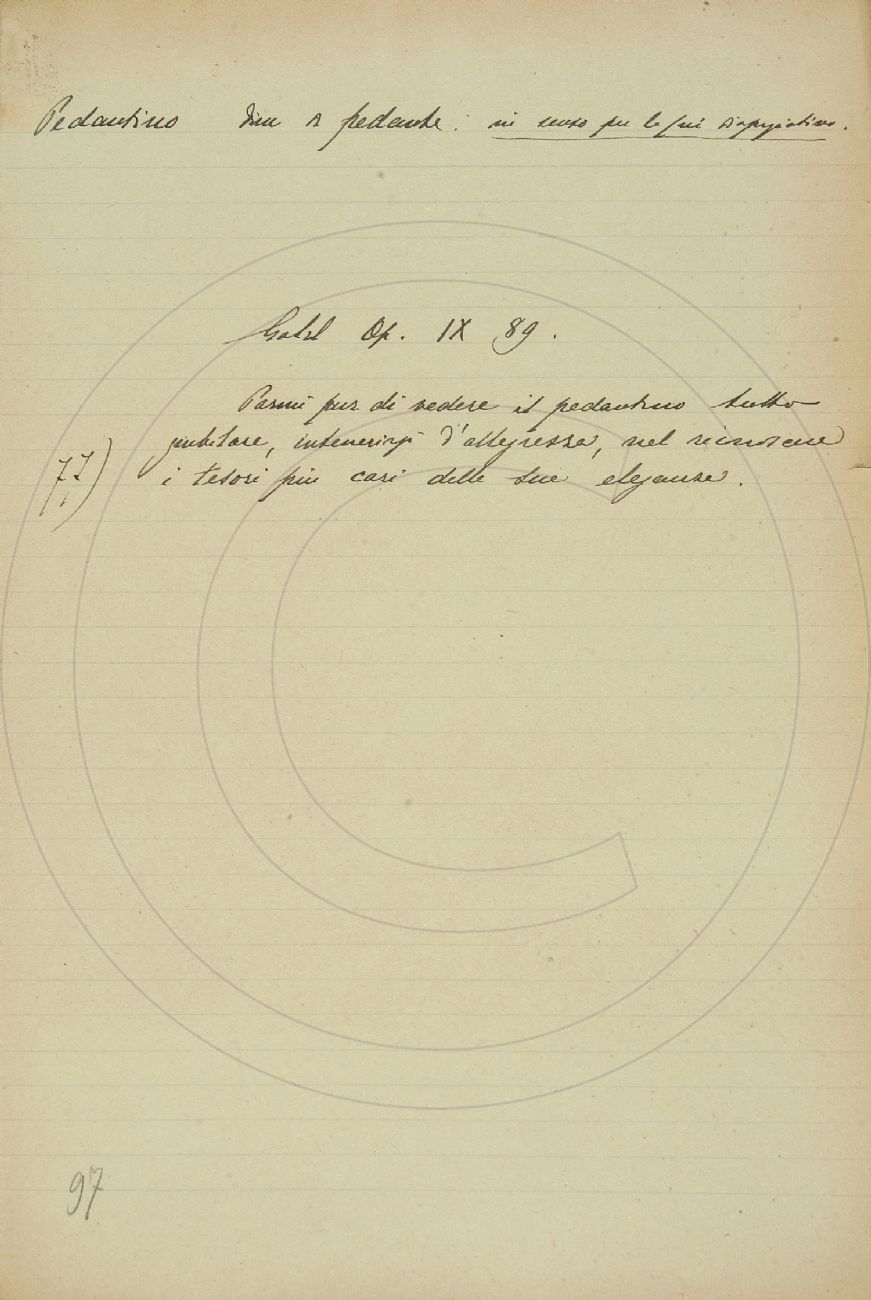 Pedantino dim di pedante: in senso per lo più dispregiativo.
Galil Op. IX 89.
Parmi pur di vedere il pedantino tutto
giubilare, intenerirsi d'allegrezza, nel riconoscere
77) i tesori più cari delle sue eleganze.
97